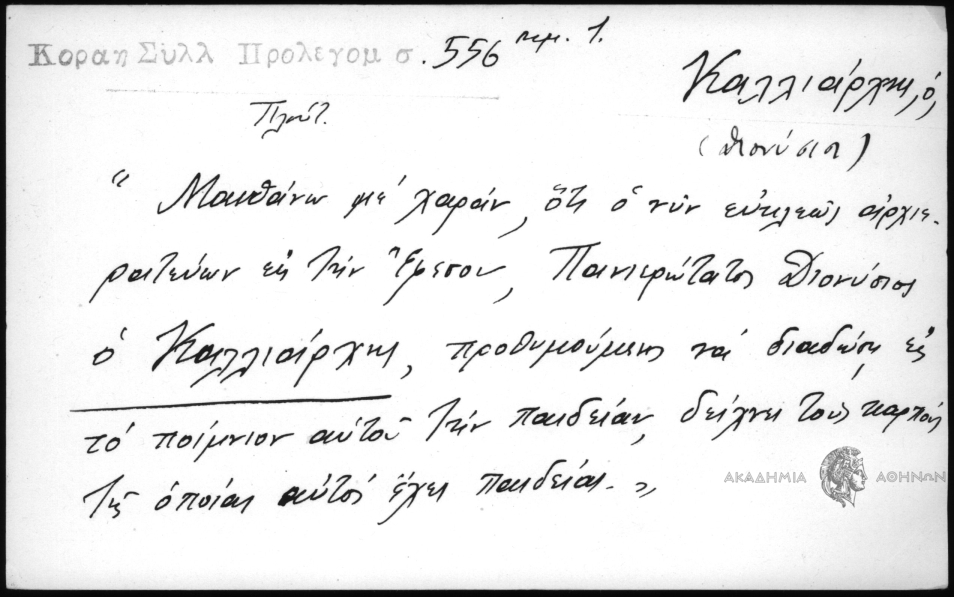 Κοραη Συλλ Προλεγομ σ. 556 σημ. 1.
Καλλιάρχης, ὁ,
Πλούτ.
(Διονύσιος)
“ Μανθάνω μέ χαράν, ὅτι ὁ νῦν εὐκλεῶς ἀρχιε-
ρατεύων εἰς τήν Ἔφεσον, Πανιερώτατος Διονύσιος
ὁ Καλλιάρχης, προθυμούμενος νά διαδώσῃ εἰς
τό ποίμνιον αὐτοῦ τήν παιδείαν, δείχνει τούς καρπούς
τῆς ὁποίας αὐτός ἔχει παιδείας. „
ΑΚΑΔΗΜΙΑ ΑΘΗΝΩΝ